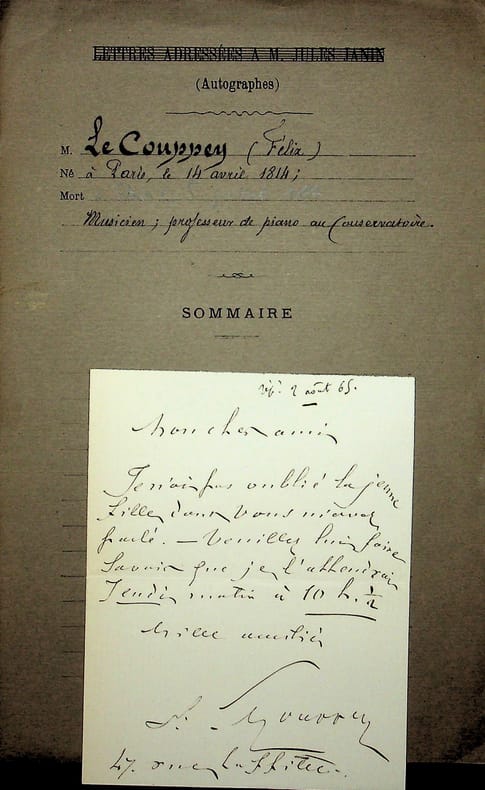 LETTRES ADRESSÉES A M. JULES JANIN
(Autographes)
M. Le Couppey (Félix)
Né à Paris, le 14 avril 1814;
Mort
Musicien; professeur de piano au Conservatoire.
SOMMAIRE
2 août 65.
Mon cher ami
Je n'ai pas oublié la jeune
fille dont vous m'avez
parlé. — Veuillez lui faire
savoir que je l'attendrai
Jeudi matin à 10 h. ½
Mille amitiés
F. Le Couppey
47. rue Laffitte.